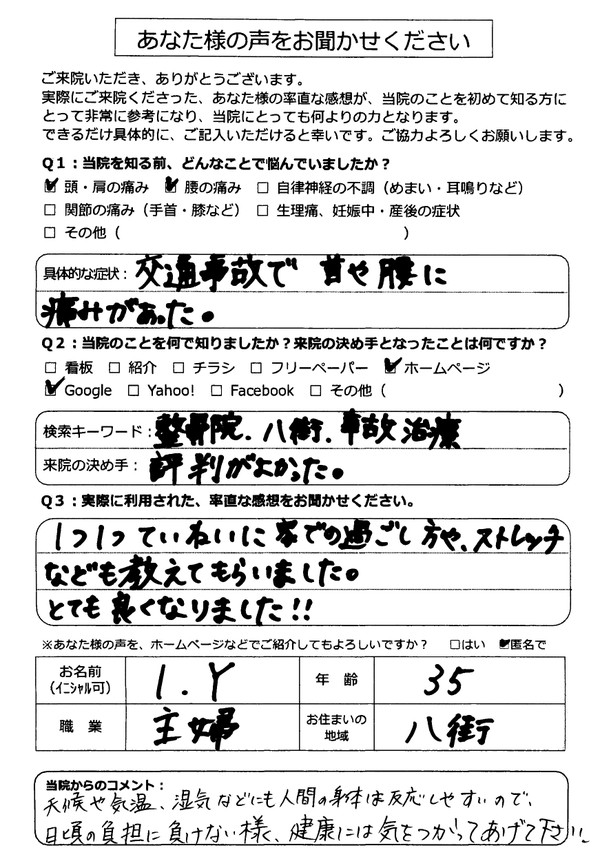 あなた様の声をお聞かせください
ご来院いただき、ありがとうございます。
実際にご来院くださった、あなた様の率直な感想が、当院のことを初めて知る方に
とって非常に参考になり、当院にとっても何よりの力となります。
できるだけ具体的に、ご記入いただけると幸いです。ご協力よろしくお願いします。
Q1：当院を知る前、どんなことで悩んでいましたか？
☑ 頭・肩の痛み ☑ 腰の痛み □ 自律神経の不調（めまい・耳鳴りなど）
□ 関節の痛み（手首・膝など） □ 生理痛、妊娠中・産後の症状
□ その他（ ）
具体的な症状：交通事故で 首や腰に
痛みがあった。
Q2：当院のことを何で知りましたか？来院の決め手となったことは何ですか？
□ 看板 □ 紹介 □ チラシ □ フリーペーパー ☑ ホームページ
☑ Google □ Yahoo! □ Facebook □ その他（ ）
検索キーワード：整骨院、八街、事故治療
来院の決め手：評判がよかった。
Q3：実際に利用された、率直な感想をお聞かせください。
1つ1つていねいに家での過ごし方や、ストレッチ
なども教えてもらいました。
とても良くなりました!!
※あなた様の声を、ホームページなどでご紹介してもよろしいですか？ □はい ☑匿名で
お名前（イニシャル可） I.Y 年 齢 35
職 業 主婦 お住まいの地域 八街
当院からのコメント：
天候や気温、湿気などにも人間の身体は反応しやすいので、
日頃の負担に負けない様、健康には気をつかってあげて下さい。